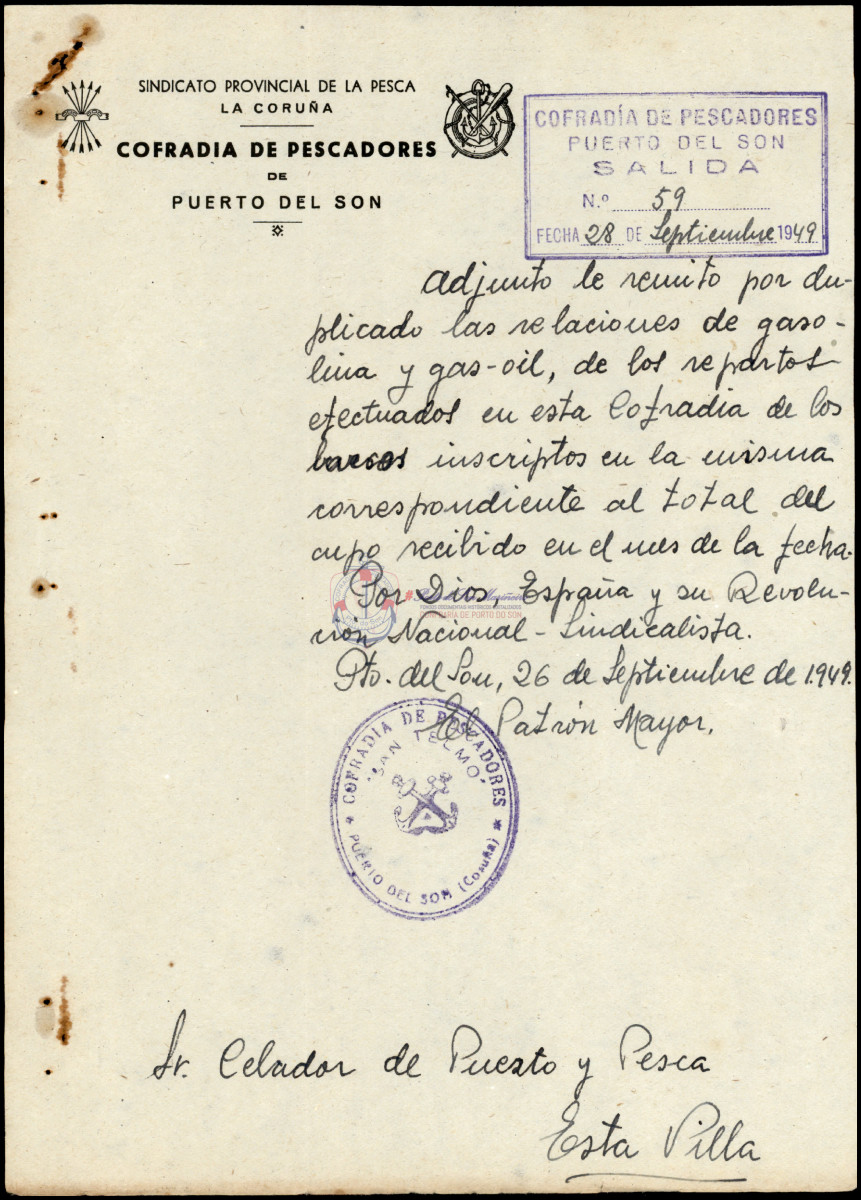 SINDICATO PROVINCIAL DE LA PESCA
LA CORUÑA
COFRADIA DE PESCADORES
DE
PUERTO DEL SON
COFRADÍA DE PESCADORES
PUERTO DEL SON
SALIDA
N.º 59
FECHA 28 DE Septiembre 1949
Adjunto le remito por du-
plicado las relaciones de gaso-
lina y gas-oil, de los repartos
efectuados en esta Cofradia de los
barcos inscriptos en la misma
correspondiente al total del
cupo recibido en el mes de la fecha.
Por Dios, España y su Revolu-
ción Nacional-Sindicalista.
Pto. del Son, 26 de Septiembre de 1.949.
El Patrón Mayor.
COFRADIA DE PESCADORES
"SAN TELMO"
PUERTO DEL SON (Coruña)
FONDOS DOCUMENTAIS HISTÓRICOS DIXITALIZADOS
CONFRARÍA DE PORTO DO SON
Sr. Celador de Puerto y Pesca
Esta Villa